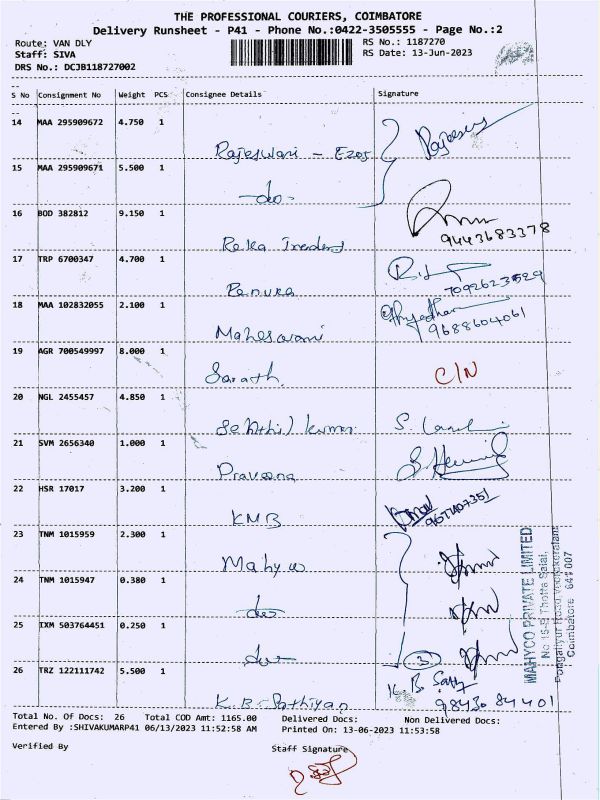 THE PROFESSIONAL COURIERS, COIMBATORE
Delivery Runsheet - P41 - Phone No.:0422-3505555 - Page No.:2
Route: VAN DLY RS No.: 1187270
Staff: SIVA RS Date: 13-Jun-2023
DRS No.: DCJB118727002
S No Consignment No Weight PCS Consignee Details Signature
14 MAA 295909672 4.750 1
Rajeswari - Ezee
15 MAA 295909671 5.500 1
-do-
16 BOD 382812 9.150 1
Reka Traders
9443683378
17 TRP 6700347 4.700 1
Renuka
7092623529
18 MAA 102832055 2.100 1
Maheswari
9688604061
19 AGR 700549997 8.000 1
Sarath. C/N
20 NGL 2455457 4.850 1
Senthil kumar
21 SVM 2656340 1.000 1
Praveena
22 HSR 17017 3.200 1
KMB
23 TNM 1015959 2.300 1
Mahyco
24 TNM 1015947 0.380 1
do
25 IXM 503764451 0.250 1
do 3
26 TRZ 122111742 5.500 1
K.B. Sathiyan
98430 84401
MAHYCO PRIVATE LIMITED
No 15-B Thotta Salai,
Coimbatore 641 007
Total No. Of Docs: 26 Total COD Amt: 1165.00 Delivered Docs: Non Delivered Docs:
Entered By :SHIVAKUMARP41 06/13/2023 11:52:58 AM Printed On: 13-06-2023 11:53:58
Verified By Staff Signature